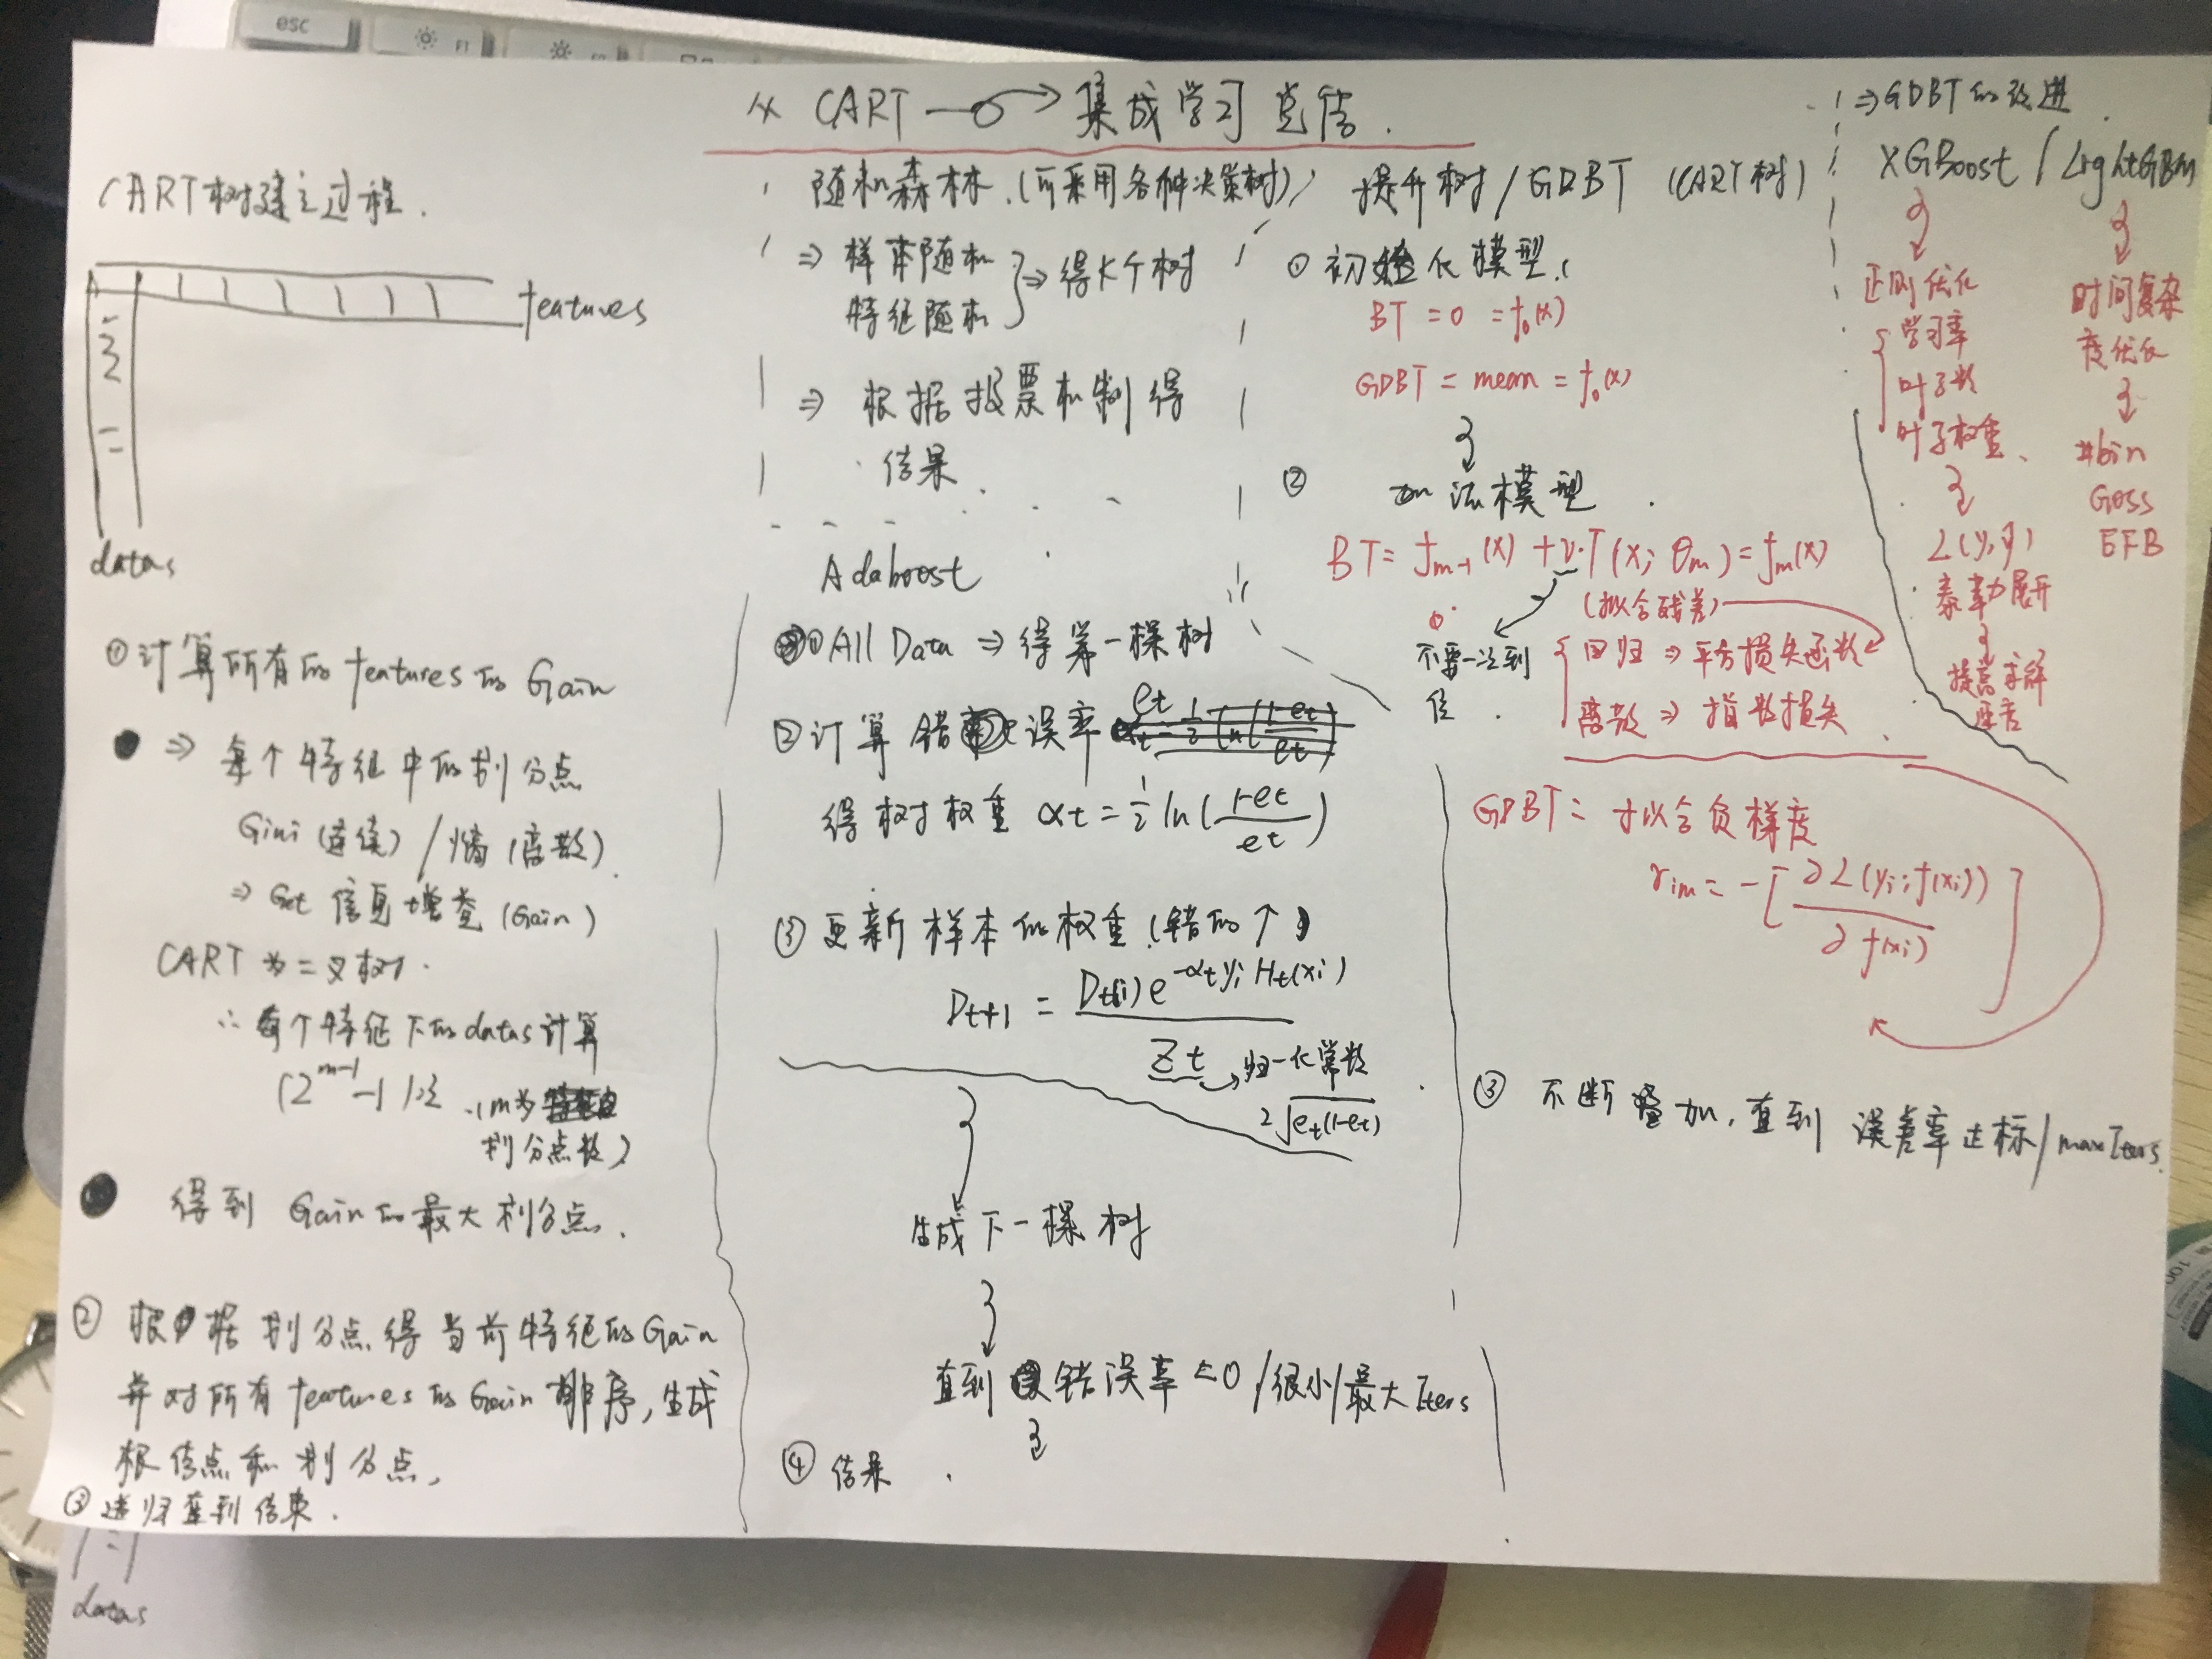 esc
F1
* CART → 集成学习总结.
CART树建立过程.
features
datas
①计算所有的features的Gain
⇒ 每个特征中的划分点
Gini(连续)/熵(离散)
⇒ Get 信息增益(Gain)
CART 为二叉树.
∴ 每个特征下的datas计算
(2^{m-1}-1)次 (m为
划分点数)
得到 Gain的最大划分点.
② 根据划分点得当前特征的Gain
并对所有features的Gain排序,生成
根结点和划分点,
③递归直到结束.
datas
随机森林.(可采用各种决策树)
⇒ 样本随机
特征随机 } ⇒ 得K个树
⇒ 根据投票机制得
结果.
Adaboost
① All Data ⇒ 得第一棵树
② 计算错误率 et
得树权重 αt = 1/2 ln(1-et/et)
③ 更新样本的权重(错的↑)
Dt+1 = Dt(i)e^{-αt yi Ht(xi)} / Zt
→归一化常数
2√et(1-et)
生成下一棵树
直到错误率≤0/很小/最大Iters
④ 结果.
提升树/GDBT (CART树)
① 初始化模型.
BT = 0 = f0(x)
GDBT = mean = f0(x)
② 加法模型.
BT = fm-1(x) + ν·T(x; θm) = fm(x)
(拟合残差)
不要一次到
位.
回归 ⇒ 平方损失函数
离散 ⇒ 指数损失.
GDBT = 拟合负梯度
rim = -[∂L(yi; f(xi)) / ∂f(xi)]
③ 不断叠加,直到 误差率达标/maxIters.
⇒GDBT的改进.
XGBoost / LightGBM
正则优化
学习率
叶子数
叶子权重、
L(y,ŷ)
泰勒展开
提高求解
时间复杂
度优化
#bin
Goss
EFB